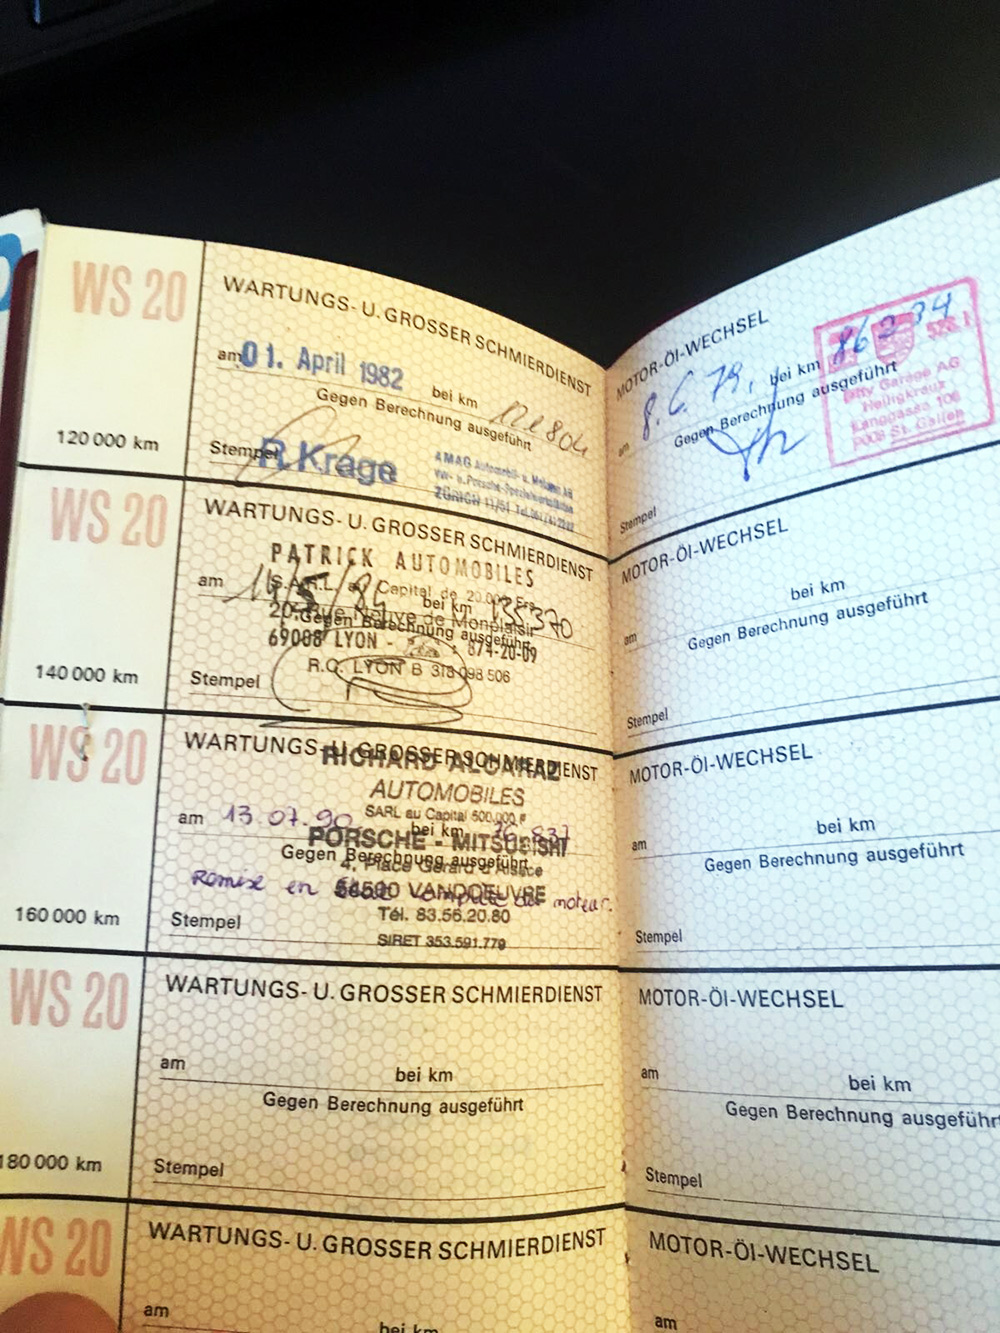 WS 20
WARTUNGS- U. GROSSER SCHMIERDIENST
am 01. April 1982 bei km
Gegen Berechnung ausgeführt
120 000 km
Stempel R. Krage
AMAG Automobil- u. Motoren AG
VW- u. Porsche-Spezialwerkstätten
ZÜRICH 11/51
WS 20
WARTUNGS- U. GROSSER SCHMIERDIENST
PATRICK AUTOMOBILES
S.A.R.L. au Capital de 20.000 Frs
am bei km 135370
20, Rue de Monplaisir
Gegen Berechnung ausgeführt
69008 LYON - 874-20-09
R.C. LYON B 318 098 506
140 000 km
Stempel
WS 20
WARTUNGS- U. GROSSER SCHMIERDIENST
RICHARD ALCARAZ
AUTOMOBILES
SARL au Capital 500.000 F
am 13 07. 90 bei km
PORSCHE - MITSUBISHI
Gegen Berechnung ausgeführt
4, Place Gérard d'Alsace
Remise en moteur.
54500 VANDOEUVRE
160 000 km
Stempel
Tél. 83.56.20.80
SIRET 353.591.779
WS 20
WARTUNGS- U. GROSSER SCHMIERDIENST
am bei km
Gegen Berechnung ausgeführt
180 000 km
Stempel
WS 20
WARTUNGS- U. GROSSER SCHMIERDIENST
am bei km
MOTOR-ÖI-WECHSEL
am 8. 6. 79. bei km 86234
Gegen Berechnung ausgeführt
City Garage AG
Heiligkreuz
Langgasse 106
9008 St. Gallen
Stempel
MOTOR-ÖI-WECHSEL
am bei km
Gegen Berechnung ausgeführt
Stempel
MOTOR-ÖI-WECHSEL
am bei km
Gegen Berechnung ausgeführt
Stempel
MOTOR-ÖI-WECHSEL
am bei km
Gegen Berechnung ausgeführt
Stempel
MOTOR-ÖI-WECHSEL
am